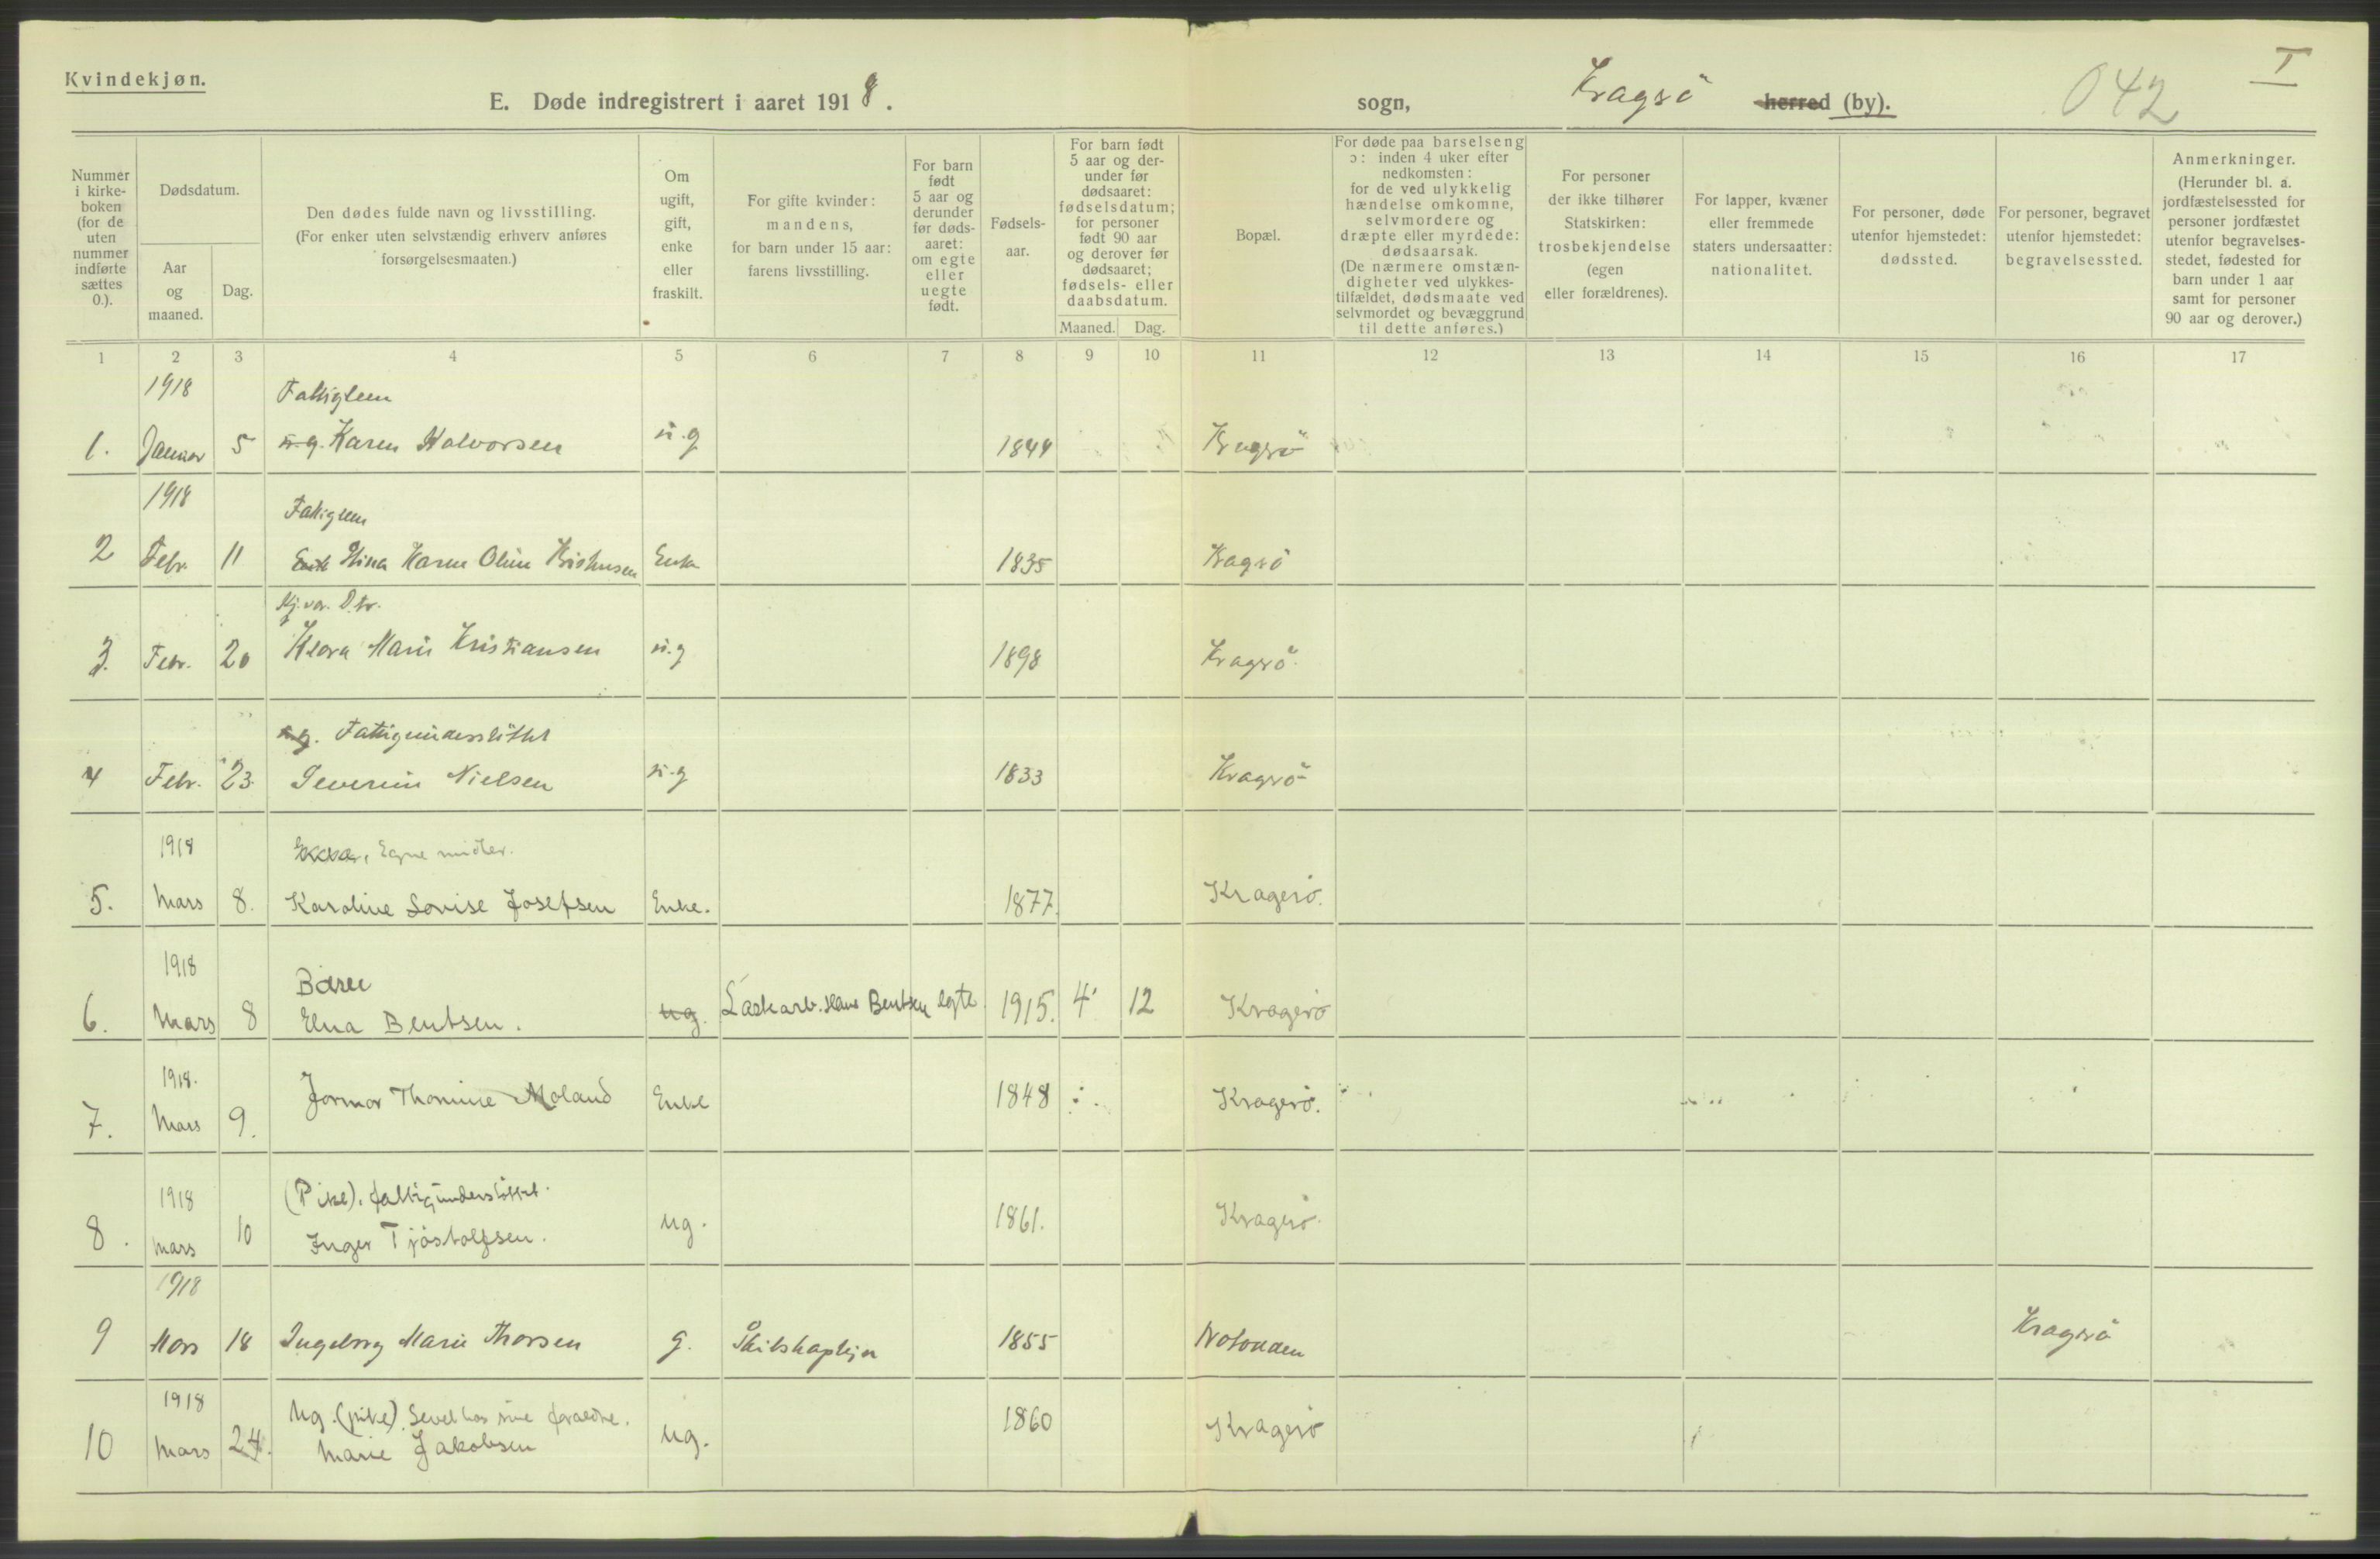 Kvindekjøn.
E. Døde indregistrert i aaret 1918. sogn, Kragerö herred (by). 042 I
Nummer i kirkeboken (for de uten nummer indførte sættes 0.).
Dødsdatum.
Aar og maaned.
Dag.
Den dødes fulde navn og livsstilling.
(For enker uten selvstændig erhverv anføres forsørgelsesmaaten.)
Om ugift, gift, enke eller fraskilt.
For gifte kvinder: mandens, for barn under 15 aar: farens livsstilling.
For barn født 5 aar og derunder før dødsaaret: om egte eller uegte født.
Fødselsaar.
For barn født 5 aar og derunder før dødsaaret: fødselsdatum; for personer født 90 aar og derover før dødsaaret; fødsels- eller daabsdatum.
Maaned. Dag.
Bopæl.
For døde paa barselseng ɔ: inden 4 uker efter nedkomsten: for de ved ulykkelig hændelse omkomne, selvmordere og dræpte eller myrdede: dødsaarsak.
(De nærmere omstændigheter ved ulykkestilfældet, dødsmaate ved selvmordet og bevæggrund til dette anføres.)
For personer der ikke tilhører Statskirken: trosbekjendelse (egen eller forældrenes).
For lapper, kvæner eller fremmede staters undersaatter: nationalitet.
For personer, døde utenfor hjemstedet: dødssted.
For personer, begravet utenfor hjemstedet: begravelsessted.
Anmerkninger.
(Herunder bl. a. jordfæstelsessted for personer jordfæstet utenfor begravelsesstedet, fødested for barn under 1 aar samt for personer 90 aar og derover.)
1 2 3 4 5 6 7 8 9 10 11 12 13 14 15 16 17
1918 Fattiglem
1. Januar 5 u.g. Karen Halvorsen u.g 1844 Kragerö
1918 Fattiglem
2 Febr. 11 Enke Stina Karen Oline Enke 1835 Kragerö
3. Febr. 20 Klara Marie Kristiansen u.g 1898 Kragerö
u.g. Fattigunderstöttet
4 Febr. 23. Severine Nielsen u.g 1833 Kragerö
1918 Egne midler.
5. Mars 8. Karoline Lovise Josefsen Enke. 1877. Kragerö.
1918 Barn
6. Mars 8 Elna Bentsen. ug. Hans Bentsen egte 1915. 4. 12 Kragerö
1918.
7. Mars 9. Jormor Thomine Moland Enke 1848 Kragerö.
1918 (Pike). fattigunderstöttet.
8. mars 10 Inger Tjöstolfsen. ug. 1861. Kragerö.
1918
9 Mars 18 Ingeborg Marie Thorsen g. Skibskaptejn 1855 Notodden Kragerö
1918 Ug. (pike). Levet hos sine foraeldre.
10 Mars 24. Marie Jakobsen ug. 1860 Kragerö